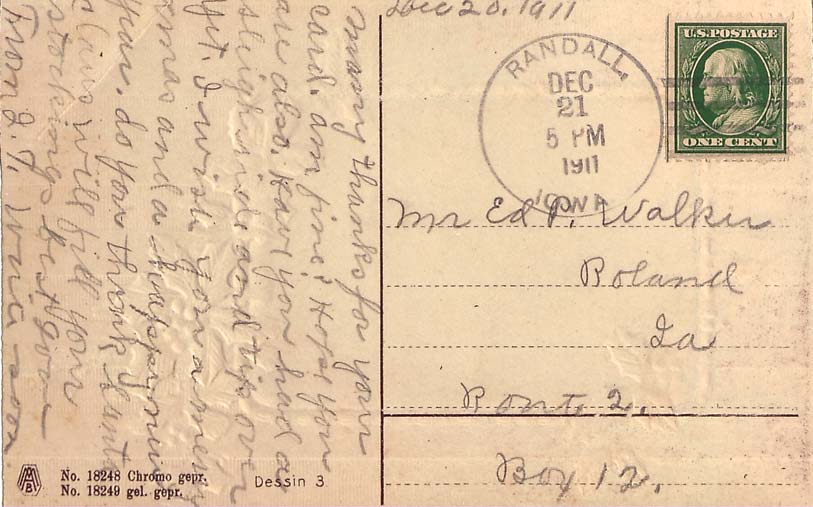 Dec 20, 1911
U.S. POSTAGE
ONE CENT
RANDALL,
DEC
21
5 PM
1911
IOWA
Mr Ed P. Walker
Roland
Ia
Rout. 2.
Box 12.
Many thanks for your
card. am fine. Hope you
are also. Have you had a
sleighride and tip over
yet. I wish you a merry
xmas and a happy new
year. do you think Santa
claus will fill your
stockings. best
From J. J. Write soon.
MB
No. 18248 Chromo gepr.
No. 18249 gel. gepr.
Dessin 3